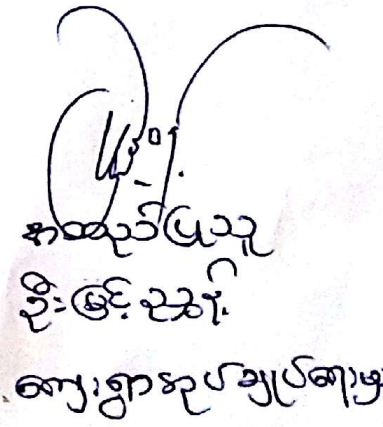 အတည်ပြုသူ
ဦးမြင့်ညွန့်
ကျေးရွာအုပ်ချုပ်ရေးမှူး